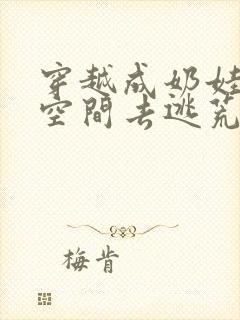 穿越成奶娃
空間去逃荒
梅肯